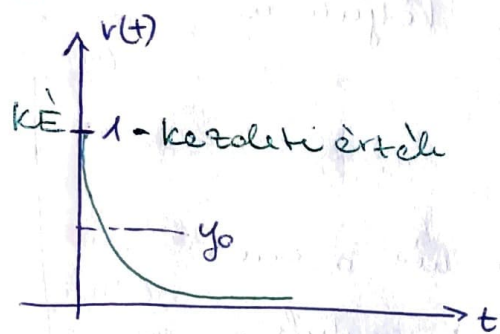 r(t)
KÈ 1 - kezdeti èrtèk
y₀
t